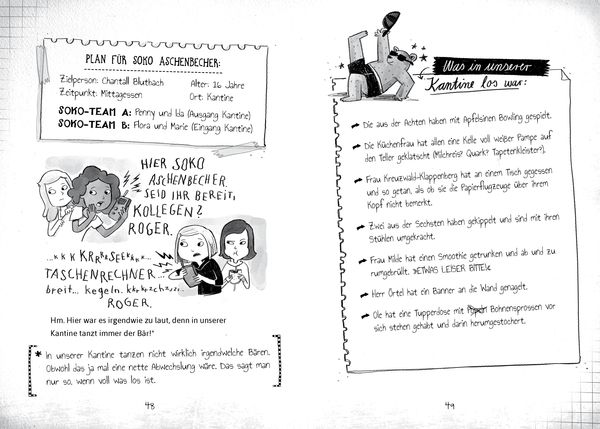 PLAN FÜR SOKO ASCHENBECHER:
Zielperson: Chantall Blutbach
Alter: 16 Jahre
Zeitpunkt: Mittagessen
Ort: Kantine
SOKO-TEAM A: Penny und Ida (Ausgang Kantine)
SOKO-TEAM B: Flora und Marie (Eingang Kantine)
HIER SOKO
ASCHENBECHER.
SEID IHR BEREIT,
KOLLEGEN?
ROGER.
TASCHENRECHNER...
breit... kegeln.
ROGER.
Hm. Hier war es irgendwie zu laut, denn in unserer
Kantine tanzt immer der Bär!*
* In unserer Kantine tanzen nicht wirklich irgendwelche Bären.
Obwohl das ja mal eine nette Abwechslung wäre. Das sagt man
nur so, wenn voll was los ist.
48
Was in unserer
Kantine los war:
Die aus der Achten haben mit Apfelsinen Bowling gespielt.
Die Küchenfrau hat allen eine Kelle voll weißer Pampe auf
den Teller geklatscht (Milchreis? Quark? Tapetenkleister?).
Frau Kreuzwald-Klappenberg hat an einem Tisch gegessen
und so getan, als ob sie die Papierflugzeuge über ihrem
Kopf nicht bemerkt.
Zwei aus der Sechsten haben gekippelt und sind mit ihren
Stühlen umgekracht.
Frau Milde hat einen Smoothie getrunken und ab und zu
rumgebrüllt. »ETWAS LEISER BITTE!«
Herr Örtel hat ein Banner an die Wand genagelt.
Ole hat eine Tupperdose mit Bohnensprossen vor
sich stehen gehabt und darin herumgestochert.
49